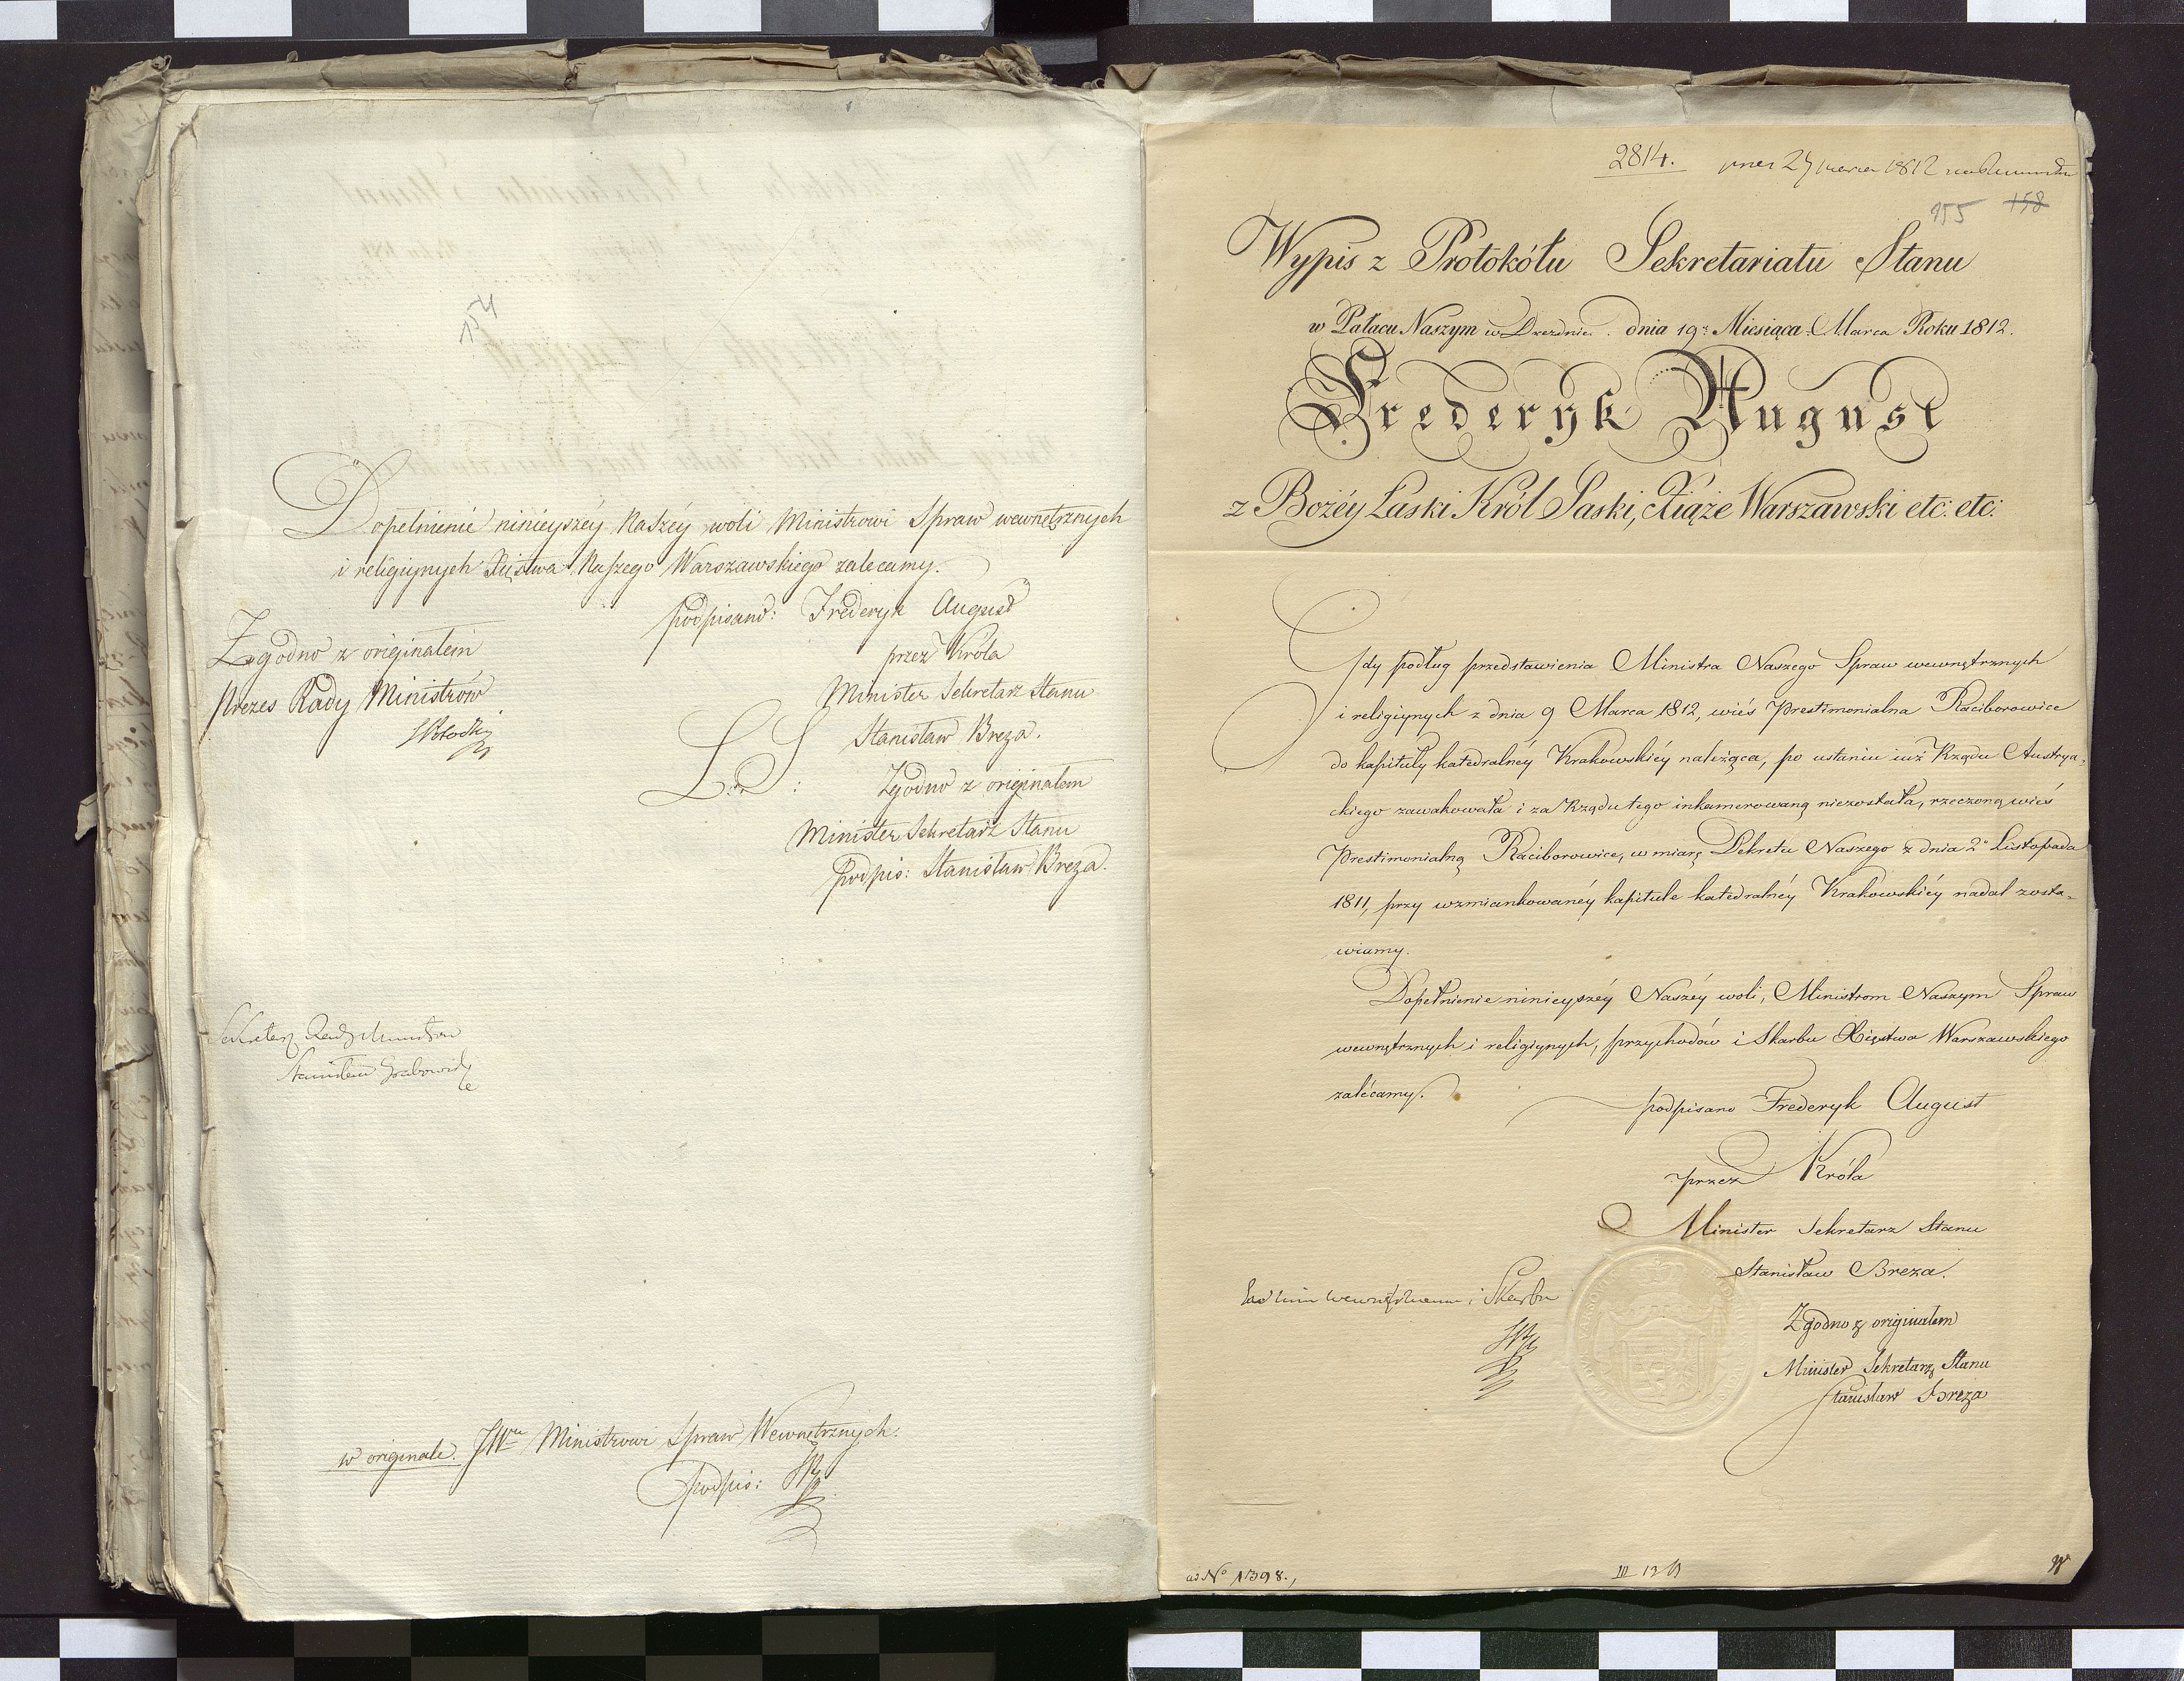 154
Dopełnienie ninieyszéy Naszéy woli Ministrowi Spraw wewnętrznych
i religiynych Xięstwa Naszego Warszawskiego zalecamy.
podpisano: Frederyk August
przez Króla
Minister Sekretarz Stanu
Stanisław Breza.
L. S.
Zgodno z originałem
Minister Sekretarz Stanu
podpis: Stanisław Breza.
Zgodno z originałem
Prezes Rady Ministrów
Sekretarz Rady Ministrów
Stanisław Grabowski
w originale. JWu Ministrowi Spraw Wewnętrznych.
podpis:
2814. 1812
155 158
Wypis z Protokółu Sekretariatu Stanu
w Pałacu Naszym w Dreznie. dnia 19. Miesiąca Marca Roku 1812.
Frederyk August
z Bożéy Łaski Król Saski, Xiąże Warszawski etc: etc:
Gdy podług przedstawienia Ministra Naszego Spraw wewnętrznych
i religiynych z dnia 9 Marca 1812, wieś Prestimonialna Raciborowice
do kapituły katedralnéy Krakowskiéy należąca, po ustaniu iuż Rządu Austrya-
ckiego zawakowała i za Rządu tego inkamerowaną niezostała, rzeczoną wieś
Prestimonialną Raciborowice, w miarę Dekretu Naszego z dnia 2o Listopada
1811, przy wzmiankowanéy kapitule katedralnéy Krakowskiéy nadal zosta-
wiamy.
Dopełnienie ninieyszéy Naszéy woli, Ministrom Naszym Spraw
wewnętrznych i religiynych, przychodów i Skarbu Xięstwa Warszawskiego
zalécamy.
podpisano Frederyk August
przez Króla
Minister Sekretarz Stanu
Stanisław Breza.
i Skarbu
Zgodno z originałem
Minister Sekretarz Stanu
Stanisław Breza
ad No 1398.,